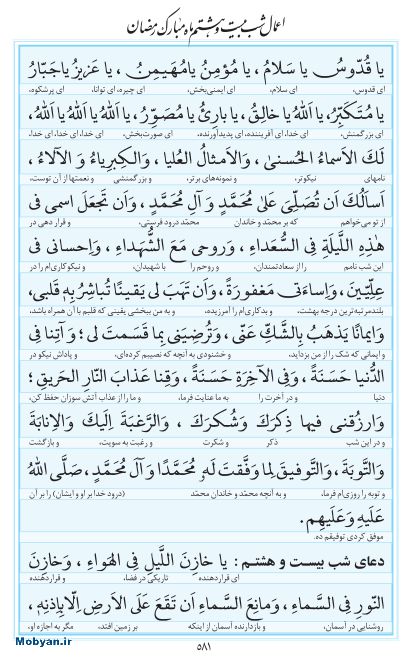 اعمال شب بیست و هشتم ماه مبارک رمضان
یا قُدّوسُ یا سَلامُ ، یا مُؤمِنُ یامُهَیمِنُ ، یا عَزیزُ یاجَبّارُ
ای قدوس، ای سلام، ای ایمنی‌بخش، ای چیره، ای توانا، ای پرشکوه،
یا مُتَکَبِّرُ، یا اَللهُ یا خالِقُ، یا بارِئُ یا مُصَوِّرُ، یا اَللهُ یا اَللهُ یا اَللهُ،
ای بزرگمنش، ای خدا، ای آفریننده، ای پدیدآورنده، ای صورت‌بخش، ای خدا، ای خدا، ای خدا،
لَكَ الاَسماءُ الحُسنیٰ، وَالاَمثالُ العُلیا، وَالکِبرِیاءُ وَ الآلاءُ،
نامهای نیکوتر، و نمونه‌های برتر، و بزرگمنشی و نعمتها از آن توست،
اَسأَلُكَ اَن تُصَلِّیَ عَلیٰ مُحَمَّدٍ وَ آلِ مُحَمَّدٍ، وَاَن تَجعَلَ اسمی فی
از تو می‌خواهم که بر محمّد و خاندان محمّد درود فرستی، و قرار دهی در
هٰذِهِ اللَّیلَةِ فِی السُّعَداءِ، وَروحی مَعَ الشُّهَداءِ، وَاِحسانی فی
این شب نامم را از سعادتمندان، و روحم را با شهیدان، و نیکوکاری‌ام را در
عِلِّیّینَ، وَاِساءَتی مَغفورَةً، وَاَن تَهَبَ لی یَقینًا تُباشِرُ بِهِ قَلبی،
بلندمرتبه‌ترین درجه بهشت، و بدکاری‌ام را آمرزیده، و به من ببخشی یقینی که قلبم با آن همراه باشد،
وَایمانًا یَذهَبُ بِالشَّكِّ عَنّی، وَتُرضِیَنی بِما قَسَمتَ لی؛ وَآتِنا فِی
و ایمانی که شک را از من بزداید، و خشنودی به آنچه که نصیبم کرده‌ای، و پاداش نیکو در
الدُّنیا حَسَنَةً، وَفِی الآخِرَةِ حَسَنَةً، وَقِنا عَذابَ النّارِ الحَریقِ؛
دنیا و در آخرت را به ما عنایت فرما، و ما را از عذاب آتش سوزان حفظ کن،
وَارزُقنی فیها ذِکرَكَ وَشُکرَكَ، وَالرَّغبَةَ اِلَیكَ وَالاِنابَةَ
و در این شب ذکر و شکرت و رغبت به سویت، و بازگشت
وَالتَّوبَةَ، وَالتَّوفیقَ لِما وَفَّقتَ لَهُ مُحَمَّدًا وَآلَ مُحَمَّدٍ، صَلَّی اللهُ
و توبه را روزی‌ام فرما، و به آنچه محمّد و خاندان محمّد (درود خدا بر او و ایشان) را بر آن
عَلَیهِ وَعَلَیهِم.
موفق کردی توفیقم ده.
دعای شب بیست و هشتم : یا خازِنَ اللَّیلِ فِی الهَواءِ، وَخازِنَ
ای قراردهنده تاریکی در فضا، و قراردهنده
النّورِ فِی السَّماءِ، وَمانِعَ السَّماءِ اَن تَقَعَ عَلَی الاَرضِ اِلّا بِاِذنِهِ،
روشنایی در آسمان، و بازدارنده آسمان از اینکه بر زمین افتد، مگر به اجازه او،
۵۸۱
Mobyan.ir